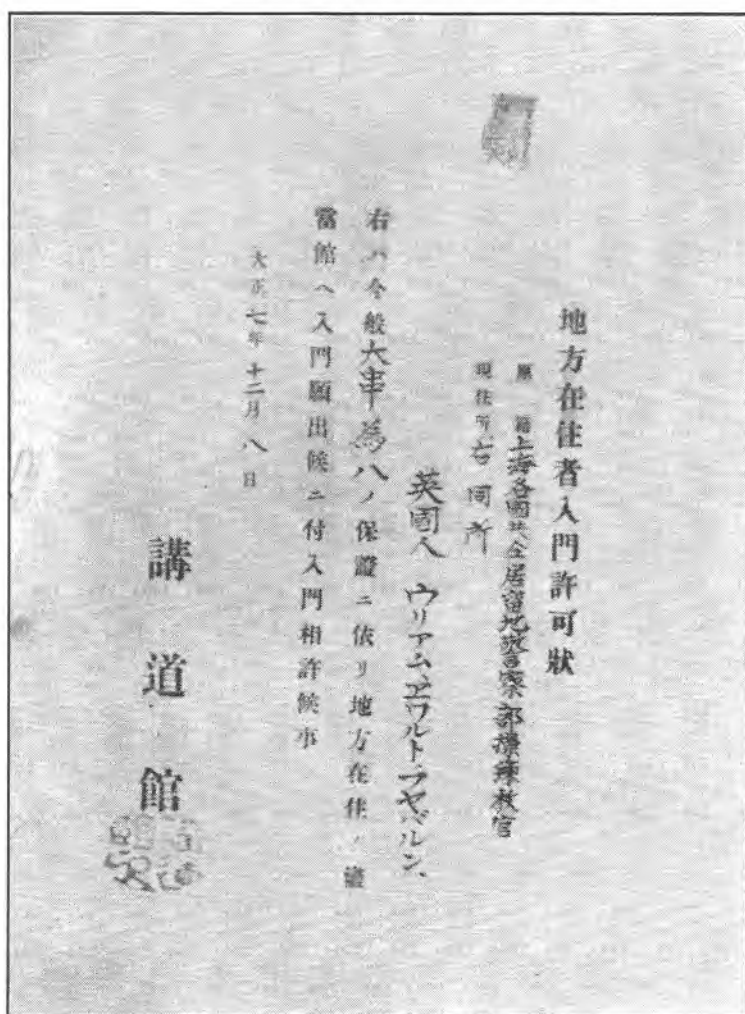 地方在住者入門許可狀
原籍 上海各國共仝居留地警察部操練教官
現住所 右同所
英國人 ウリアム、ヱワルト・フヤバルン、
右ハ今般大串為八ノ保證ニ依リ地方在住ノ
當館へ入門願出候ニ付入門相許候事
大正七年十二月八日
講道館